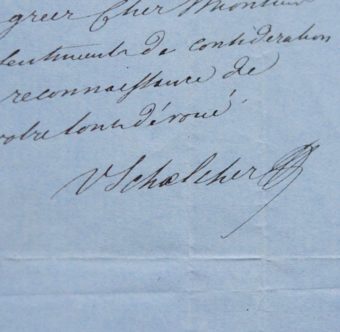 gréer Cher Monsieur
sentiments de considération
reconnaissance de
votre tout dévoué.
V Schœlcher